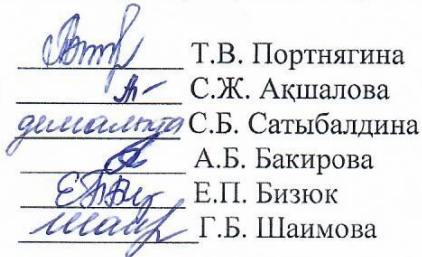 Т.В. Портнягина
С.Ж. Ақшалова
демалыста С.Б. Сатыбалдина
А.Б. Бакирова
Е.П. Бизюк
Г.Б. Шаимова